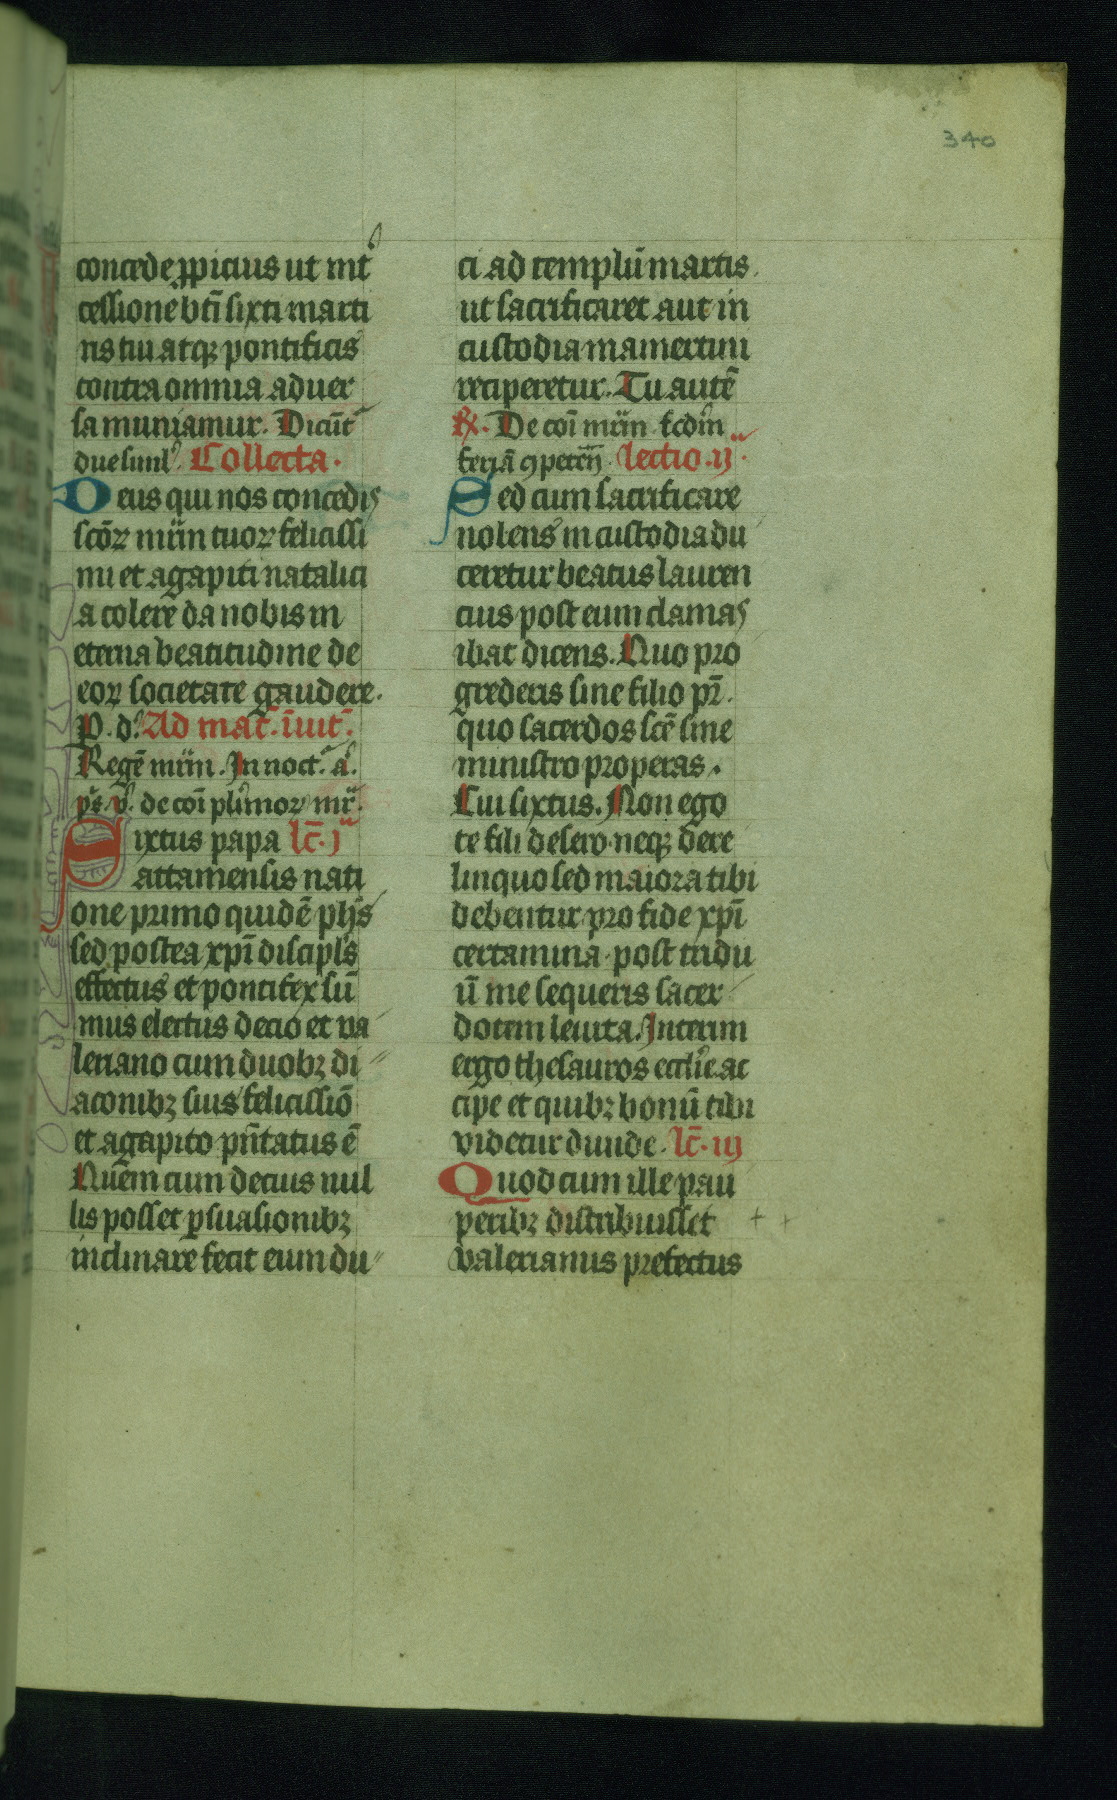 340
concede ꝓpicius ut int᷑
cessione bt̄i sixti marti
ris tui atqꝫ pontificis
contra omnia aduer
sa muniamur. Dicūt᷑
due siml᷑. Collecta.
Deus qui nos concedis
scōꝝ mr̄m tuoꝝ felicissi
mi et agapiti natalici
a colere da nobis in
eterna beatitudine de
eoꝝ societate gaudere.
P. d. Ad mat᷑. īuit᷑.
Regē mr̄m. In noct᷑. a᷑.
ps̄. v᷑. de coī plimoꝝ mr̄.
Sixtus papa lc̄. j
attamensis nati
one primo quidē ph̄s
sed postea xpī discipls
effectus et pontifex sū
mus electus decio et va
leriano cum duobꝫ di
aconibꝫ suis felicissiō
et agapito pn̄tatus ē
Quem cum decius nul
lis posset ꝑsuasionibꝫ
inclinare fecit eum du
ci ad templū martis
ut sacrificaret aut in
custodia mamertini
reciperetur. Tu autē
℟. De coī mr̄m scdm̄
feriā ꝯpeten̄. lectio. ij.
Sed cum sacrificare
nolens in custodia du
ceretur beatus lauren
cius post eum clamas
ibat dicens. Quo pro
grederis sine filio pr̄.
quo sacerdos scē sine
ministro properas.
Cui sixtus. Non ego
te fili desero neqꝫ dere
linquo sed maiora tibi
debentur pro fide xpī
certamina post tridu
ū me sequeris sacer
dotem leuita. Interim
ergo thesauros eccl̄ie ac
cipe et quibꝫ bonū tibi
videtur diuide. lc̄. iij
Quod cum ille pau
peribꝫ distribuisset + +
valerianus prefectus